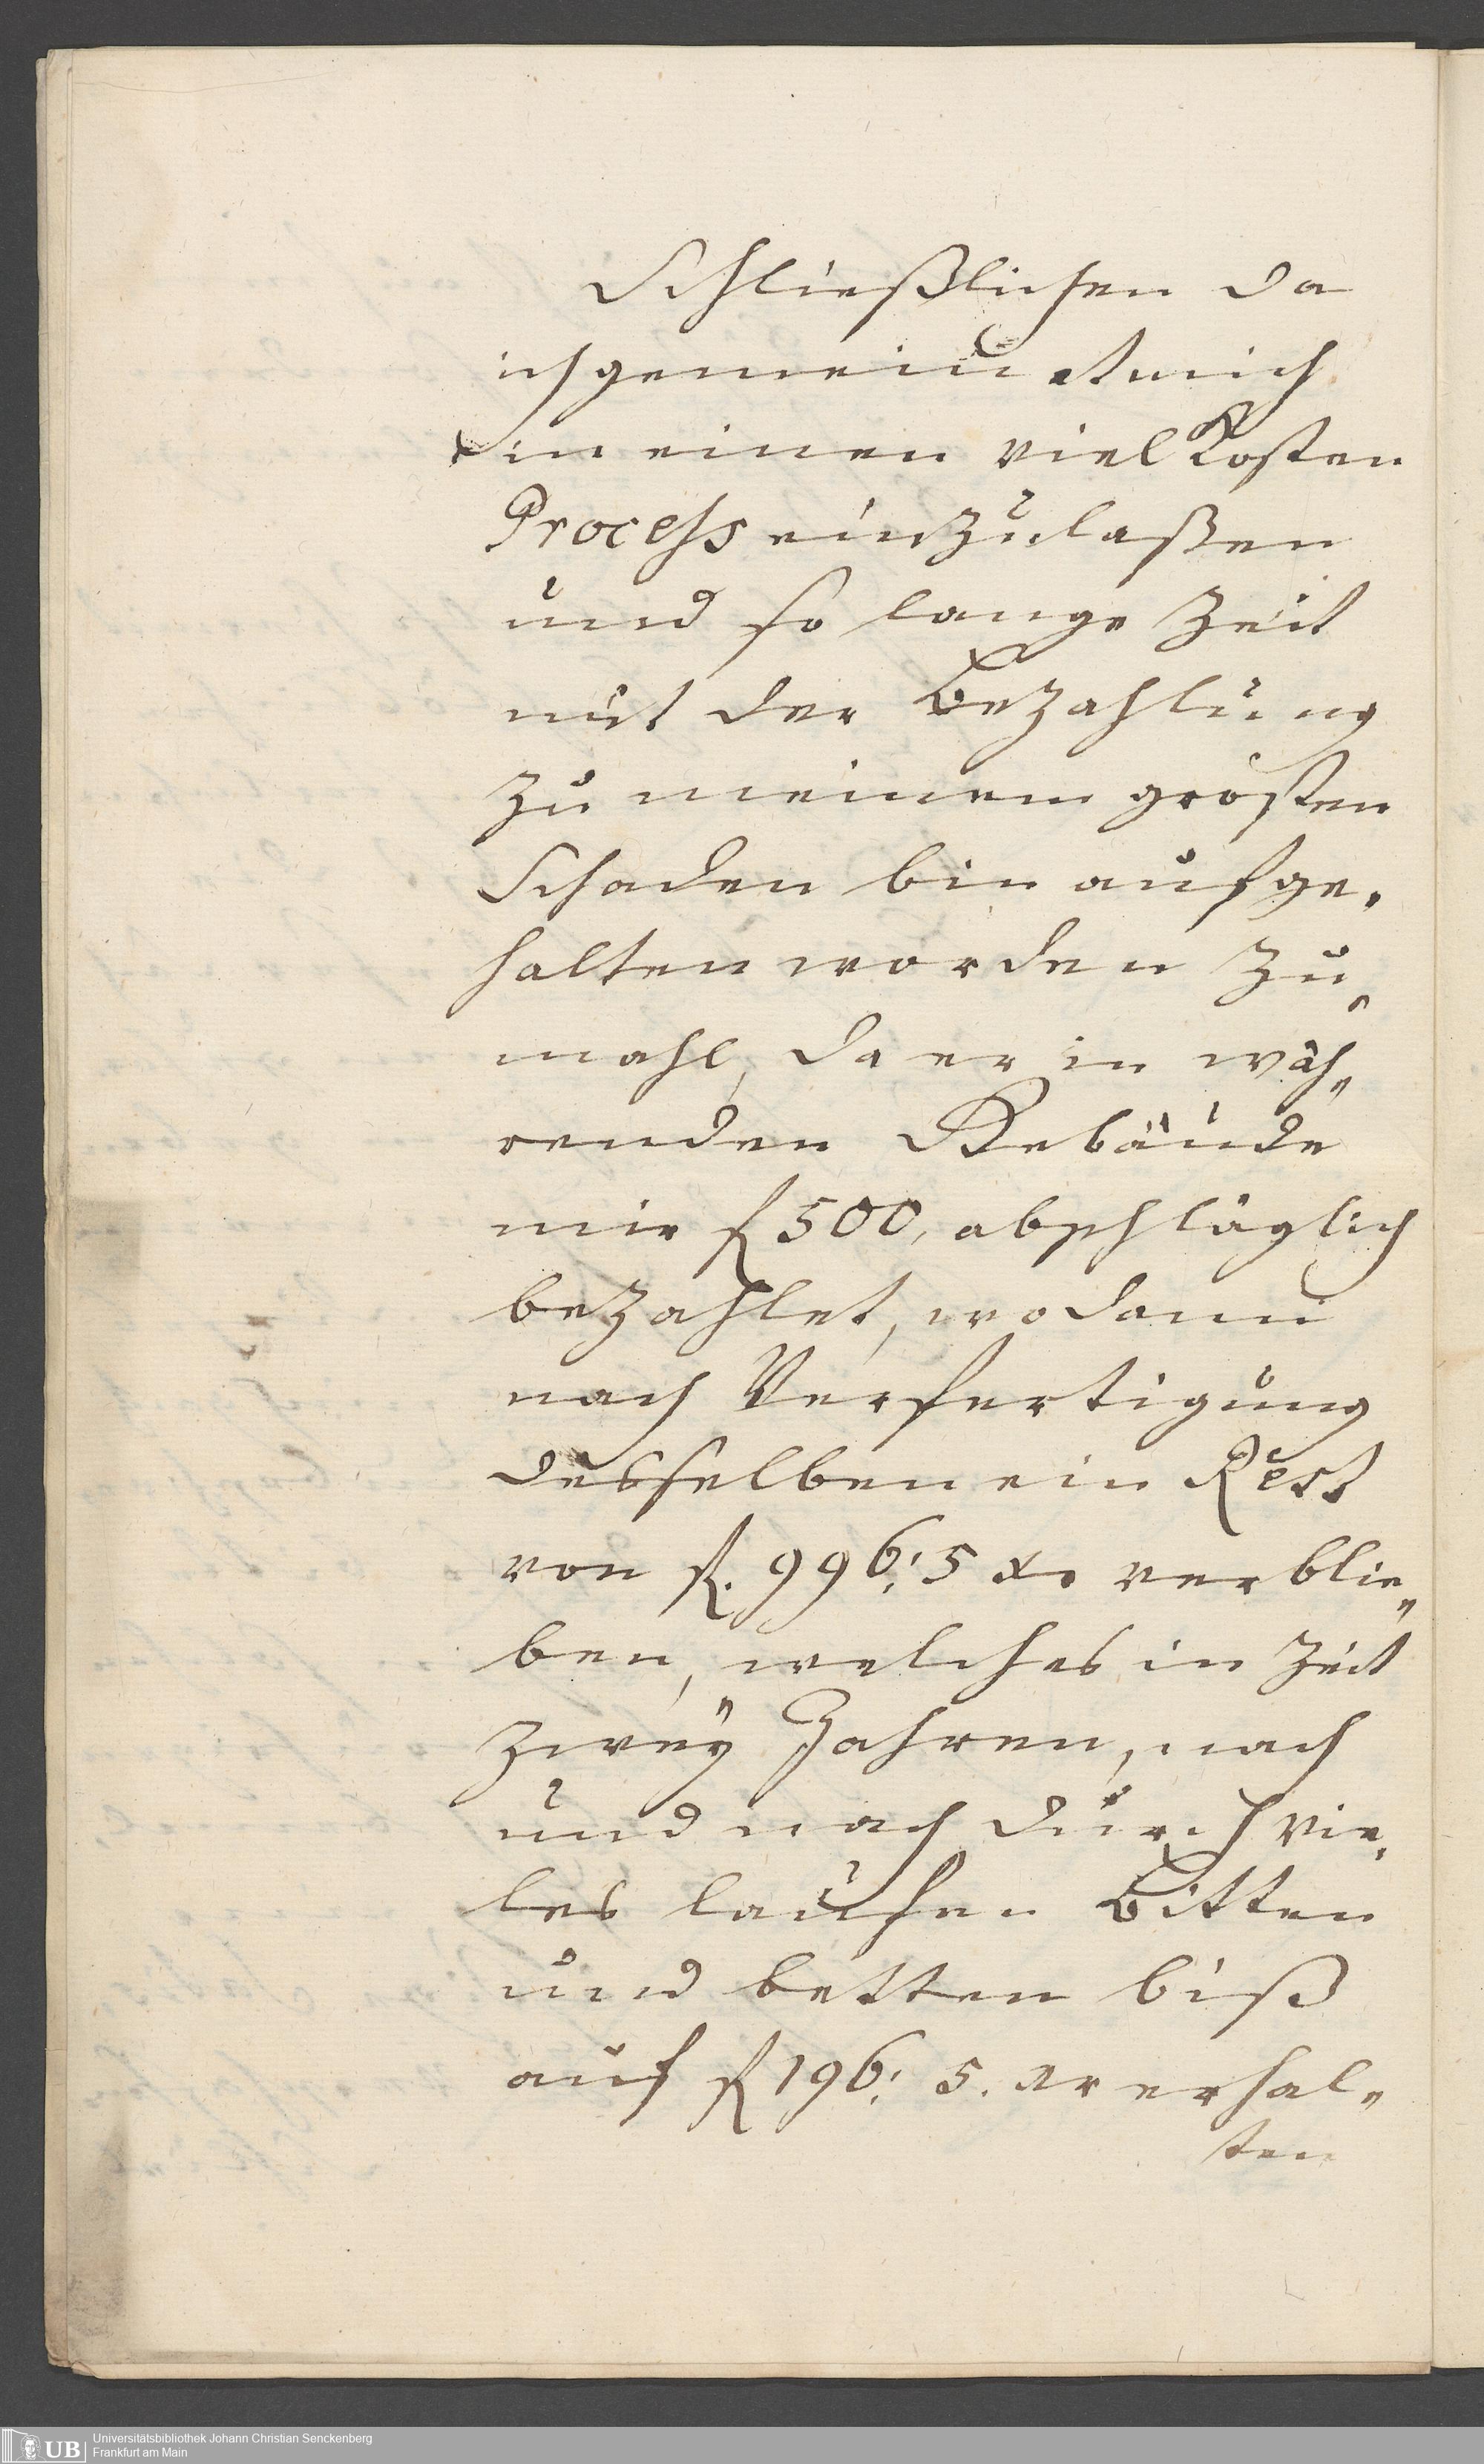 Schließlichen da
ich gemeint mich
in einen viel Kosten
Process einzulaßen
und so lange Zeit
mit der Bezahlung
zu meinem grösten
Schaden bin aufge„
halten worden zu„
mahl, da er in wäh„
renden Gebäude
mir f 500, abschläglich
bezahlet, wo dann
nach Verfertigung
desselben ein Rest
von f. 996: 5 xr verblie„
ben, welches in Zeit
zwey Jahren, nach
und nach durch vie„
les lauffen Bitten
und betten biß
auf f 196: 5. xr erhal„
ten
Universitätsbibliothek Johann Christian Senckenberg
Frankfurt am Main
UB